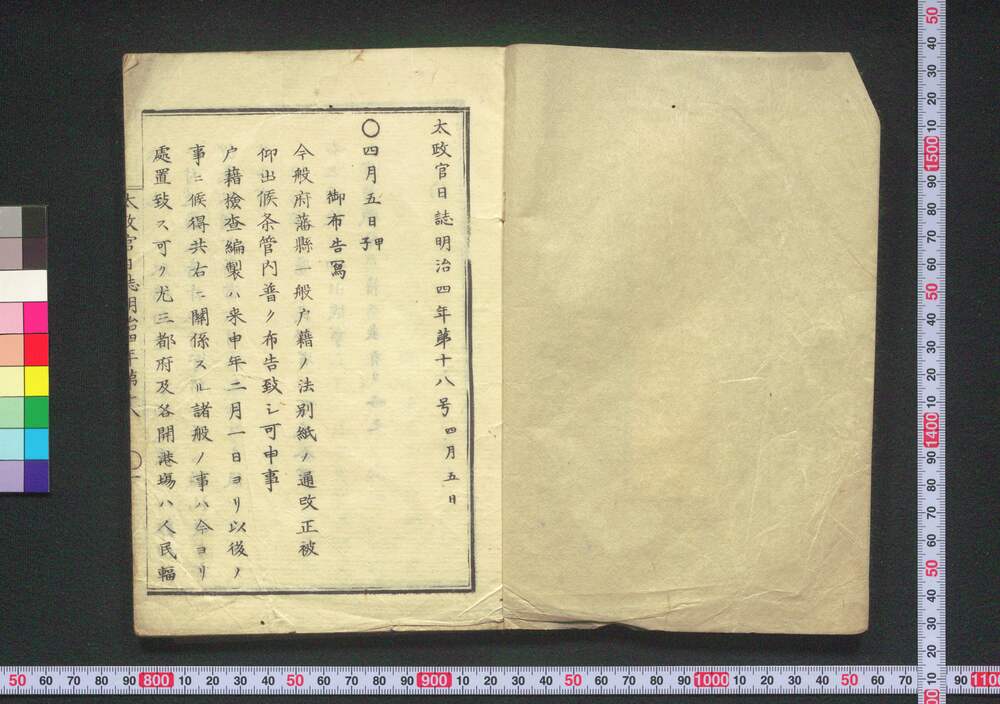 太政官日誌明治四年第十八号 四月五日
〇四月五日 甲子
御布告寫
今般府藩縣一般户籍ノ法別紙ノ通改正被
仰出候条管内普ク布告致シ可申事
户籍檢查編製ハ来申年二月一日ヨリ以後ノ
事ニ候得共右ニ關係スル諸般ノ事ハ今ヨリ
處置致ス可ク尤三都府及各開港塲ハ人民輻
太政官日誌明治四年第十八
50 40 30 20 10 1500 90 80 70 60 50 40 30 20 10 1400 90 80 70 60 50 40 30 20 10
50 60 70 80 90 800 10 20 30 40 50 60 70 80 90 900 10 20 30 40 50 60 70 80 90 1000 10 20 30 40 50 60 70 90 1100